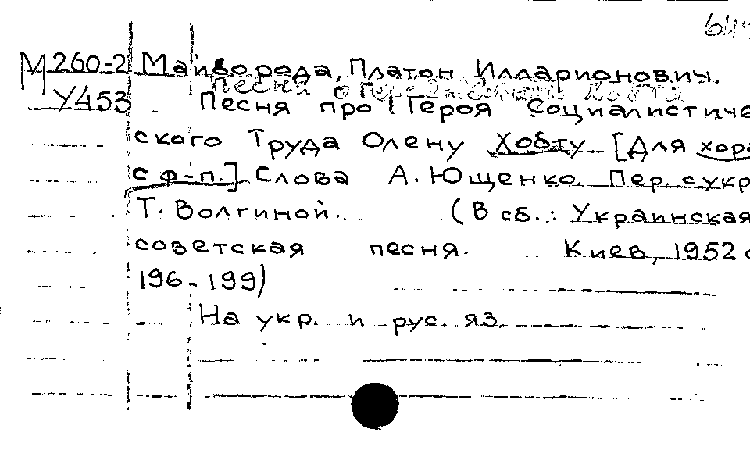 М 260-2 Майборода, Платон Илларионович.
У453 Песня про Героя Социалистиче
ского Труда Олену Хобту [Для хора
с ф-п.] Слова А. Ющенко Пер. с укр
Т. Волгиной. (В сб.: Украинская
советская песня. Киев, 1952 с
196-199)
На укр. и рус. яз.